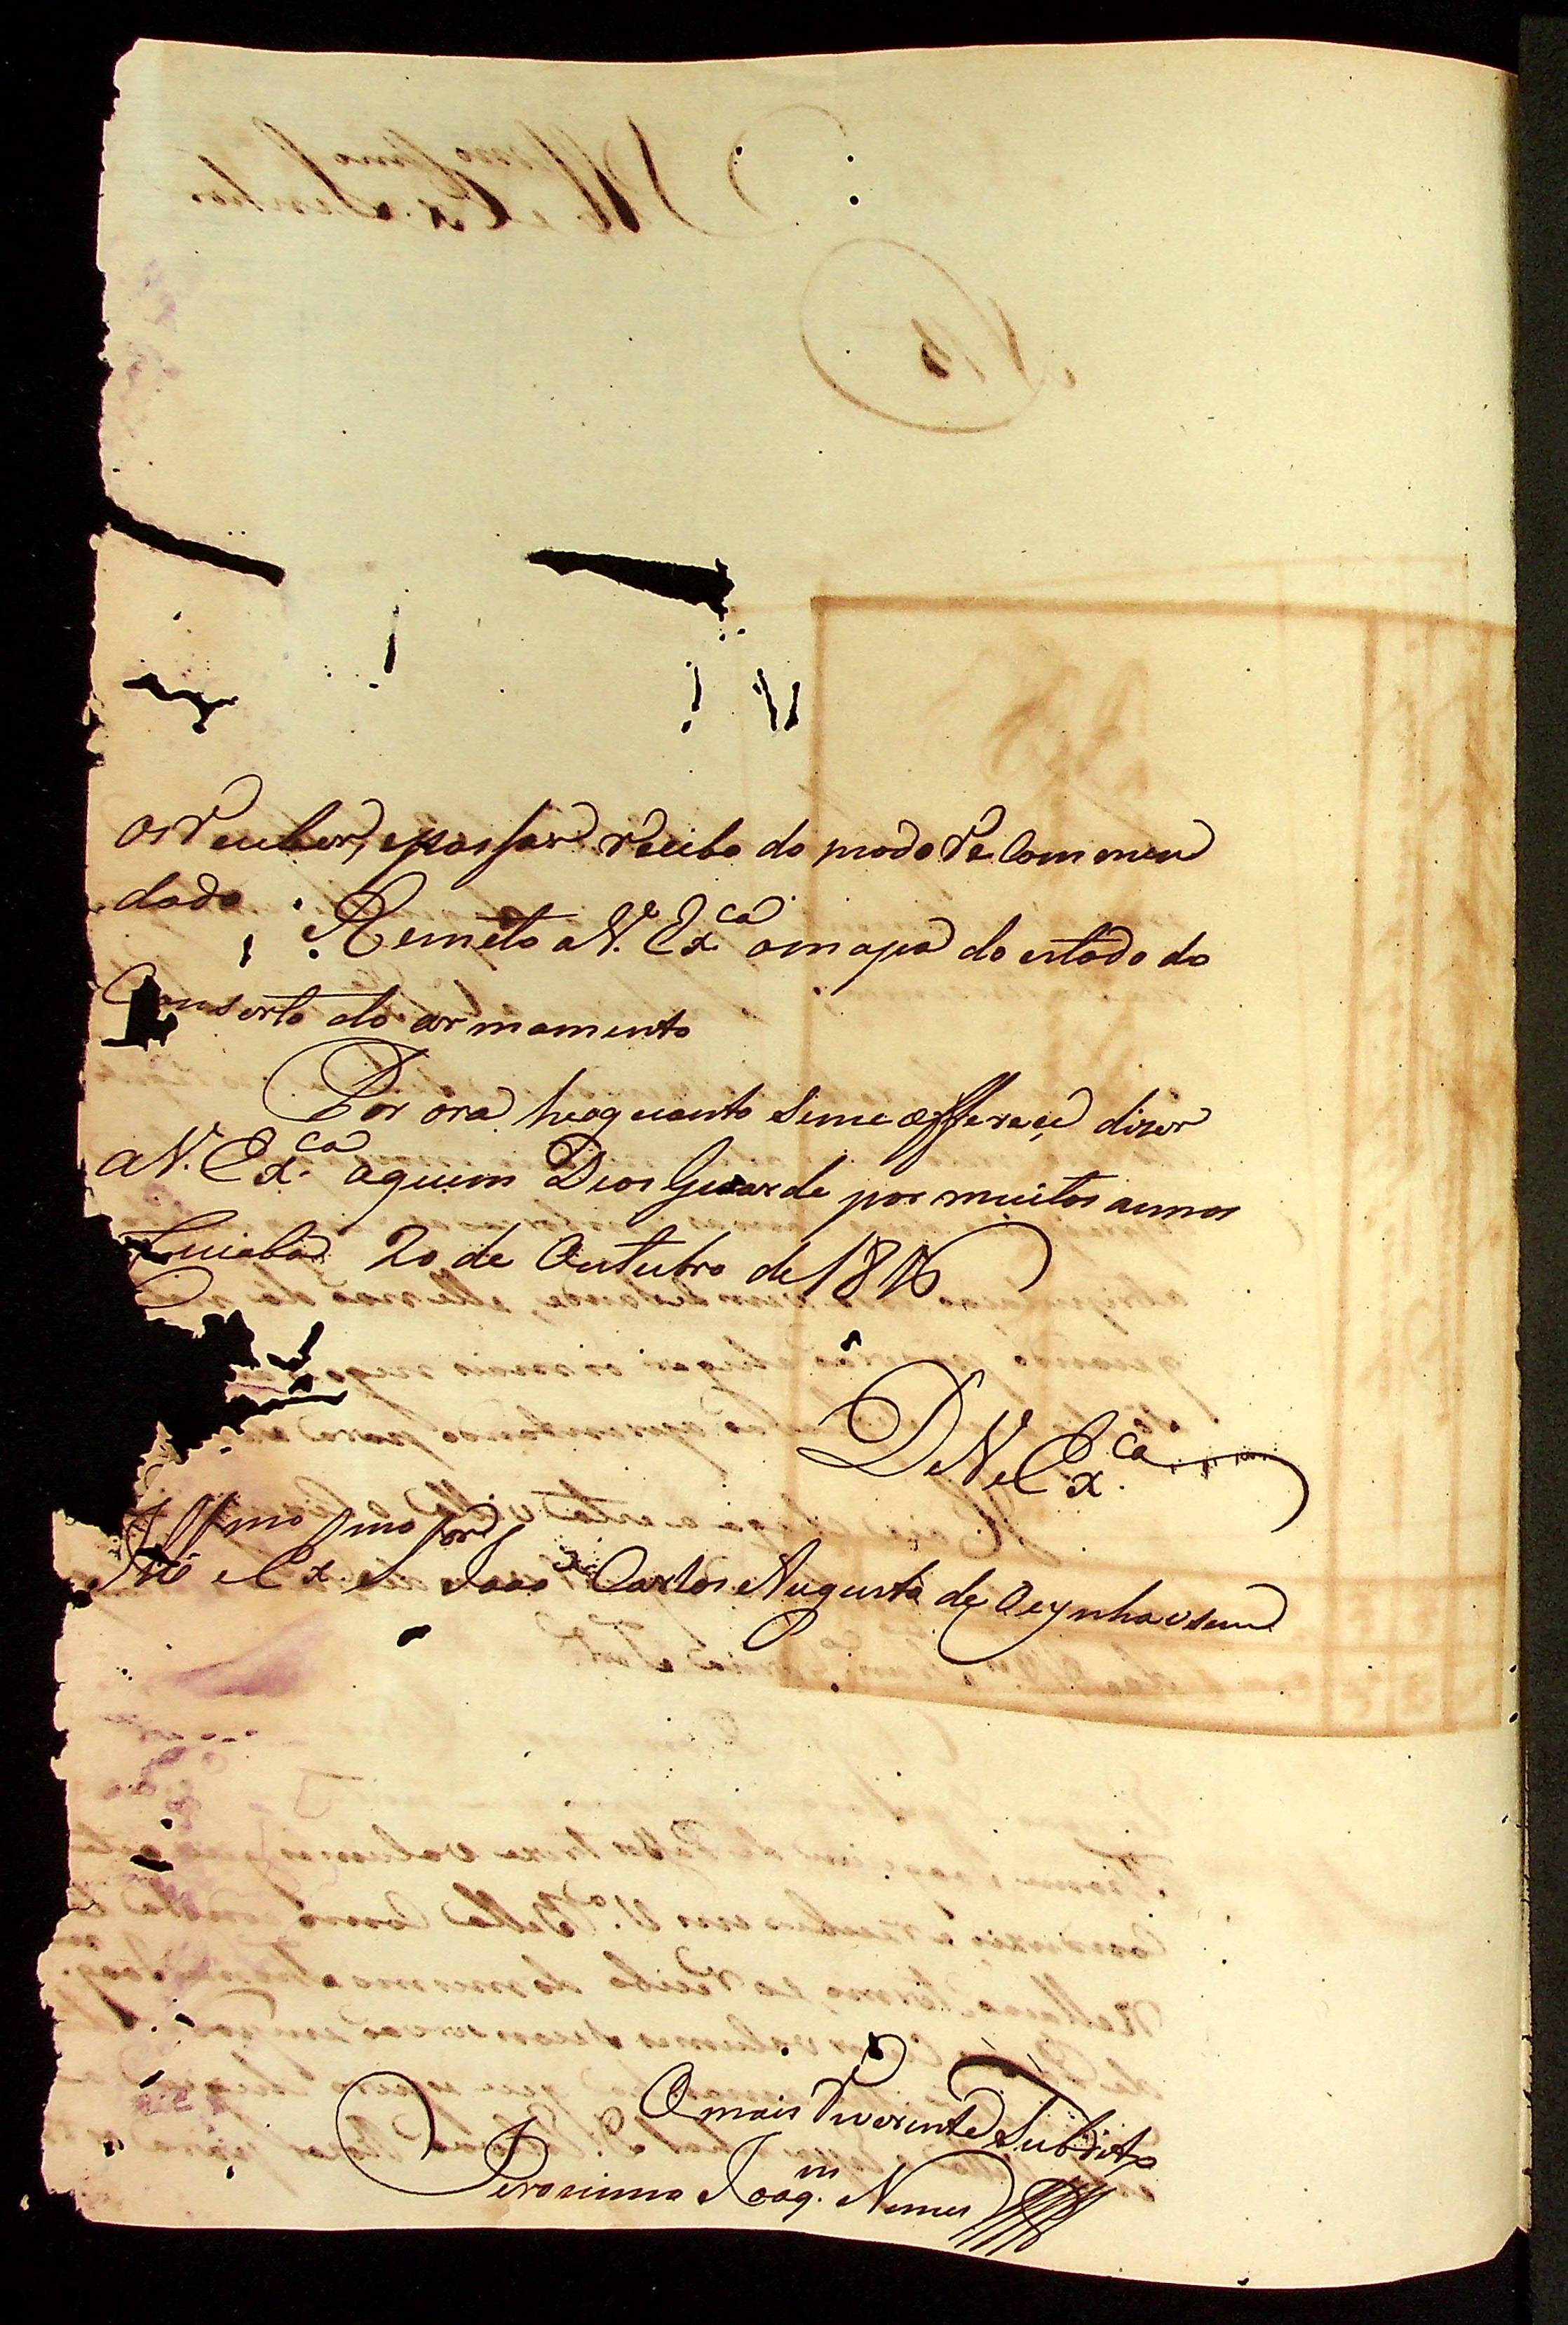 os receber, epassar recibo do modo recommen
dado.
Remeto aV. Ex.ca omapa do estado do
Conserto do armamento
Por ora heoquanto seme offerece dizer
aV. Ex.ca aquem Deos Guarde por muitos annos
Cuiabá 20 de Outubro de 1816
De V. Ex.ca
Illmo e Exmo Snor João Carlos Augusto de Oeynhausen
O mais Reverente Subdito
Jeronimo Joaqm. Nunes